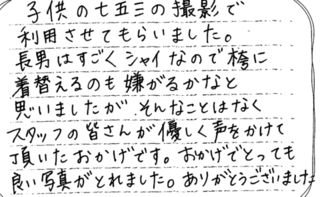 子供の七五三の撮影で
利用させてもらいました。
長男はすごくシャイなので袴に
着替えるのも嫌がるかなと
思いましたが そんなことはなく
スタッフの皆さんが優しく声をかけて
頂いたおかげです。おかげでとっても
良い写真がとれました。ありがとうございました